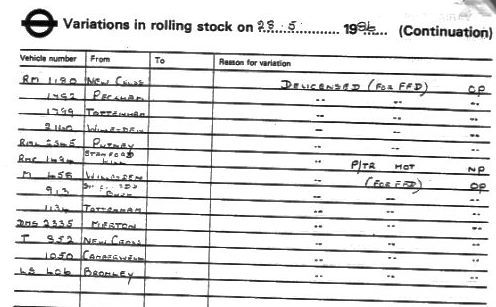 Variations in rolling stock on 28.5. 1986 (Continuation)
Vehicle number From To Reason for variation
RM 1180 NEW CROSS DELICENSED (FOR FFD) OP
1792 PECKHAM -- -- --
1799 TOTTENHAM -- -- --
2140 WILLESDEN -- -- --
RML 2545 PUTNEY -- -- --
RMC 1494 STAMFORD HILL P/TR MOT NP
M 455 WILLESDEN -- (FOR FFD) OP
913 -- -- --
1134 TOTTENHAM -- -- --
DMS 2335 MERTON -- -- --
T 852 NEW CROSS -- -- --
1050 CAMBERWELL -- -- --
LS 406 BROMLEY -- -- --